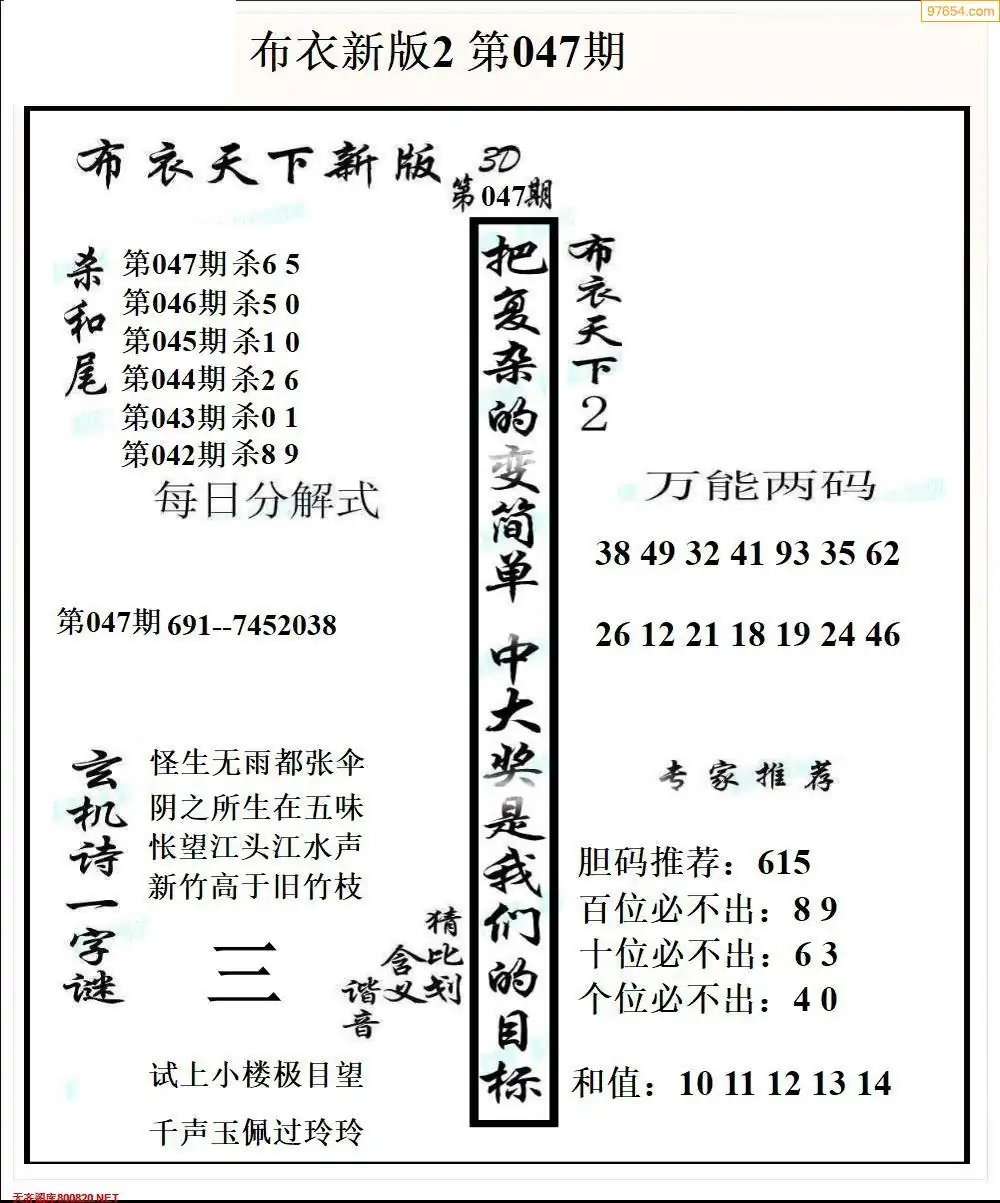 97654.com
布衣新版2 第047期
布衣天下新版
3D
第047期
杀和尾
第047期 杀6 5
第046期 杀5 0
第045期 杀1 0
第044期 杀2 6
第043期 杀0 1
第042期 杀8 9
每日分解式
第047期 691--7452038
把复杂的变简单 中大奖是我们的目标
布衣天下2
万能两码
38 49 32 41 93 35 62
26 12 21 18 19 24 46
玄机诗一字谜
怪生无雨都张伞
阴之所生在五味
怅望江头江水声
新竹高于旧竹枝
三
猜比划
含义
谐音
试上小楼极目望
千声玉佩过玲玲
专家推荐
胆码推荐：615
百位必不出：8 9
十位必不出：6 3
个位必不出：4 0
和值：10 11 12 13 14
天齐图库800820.NET